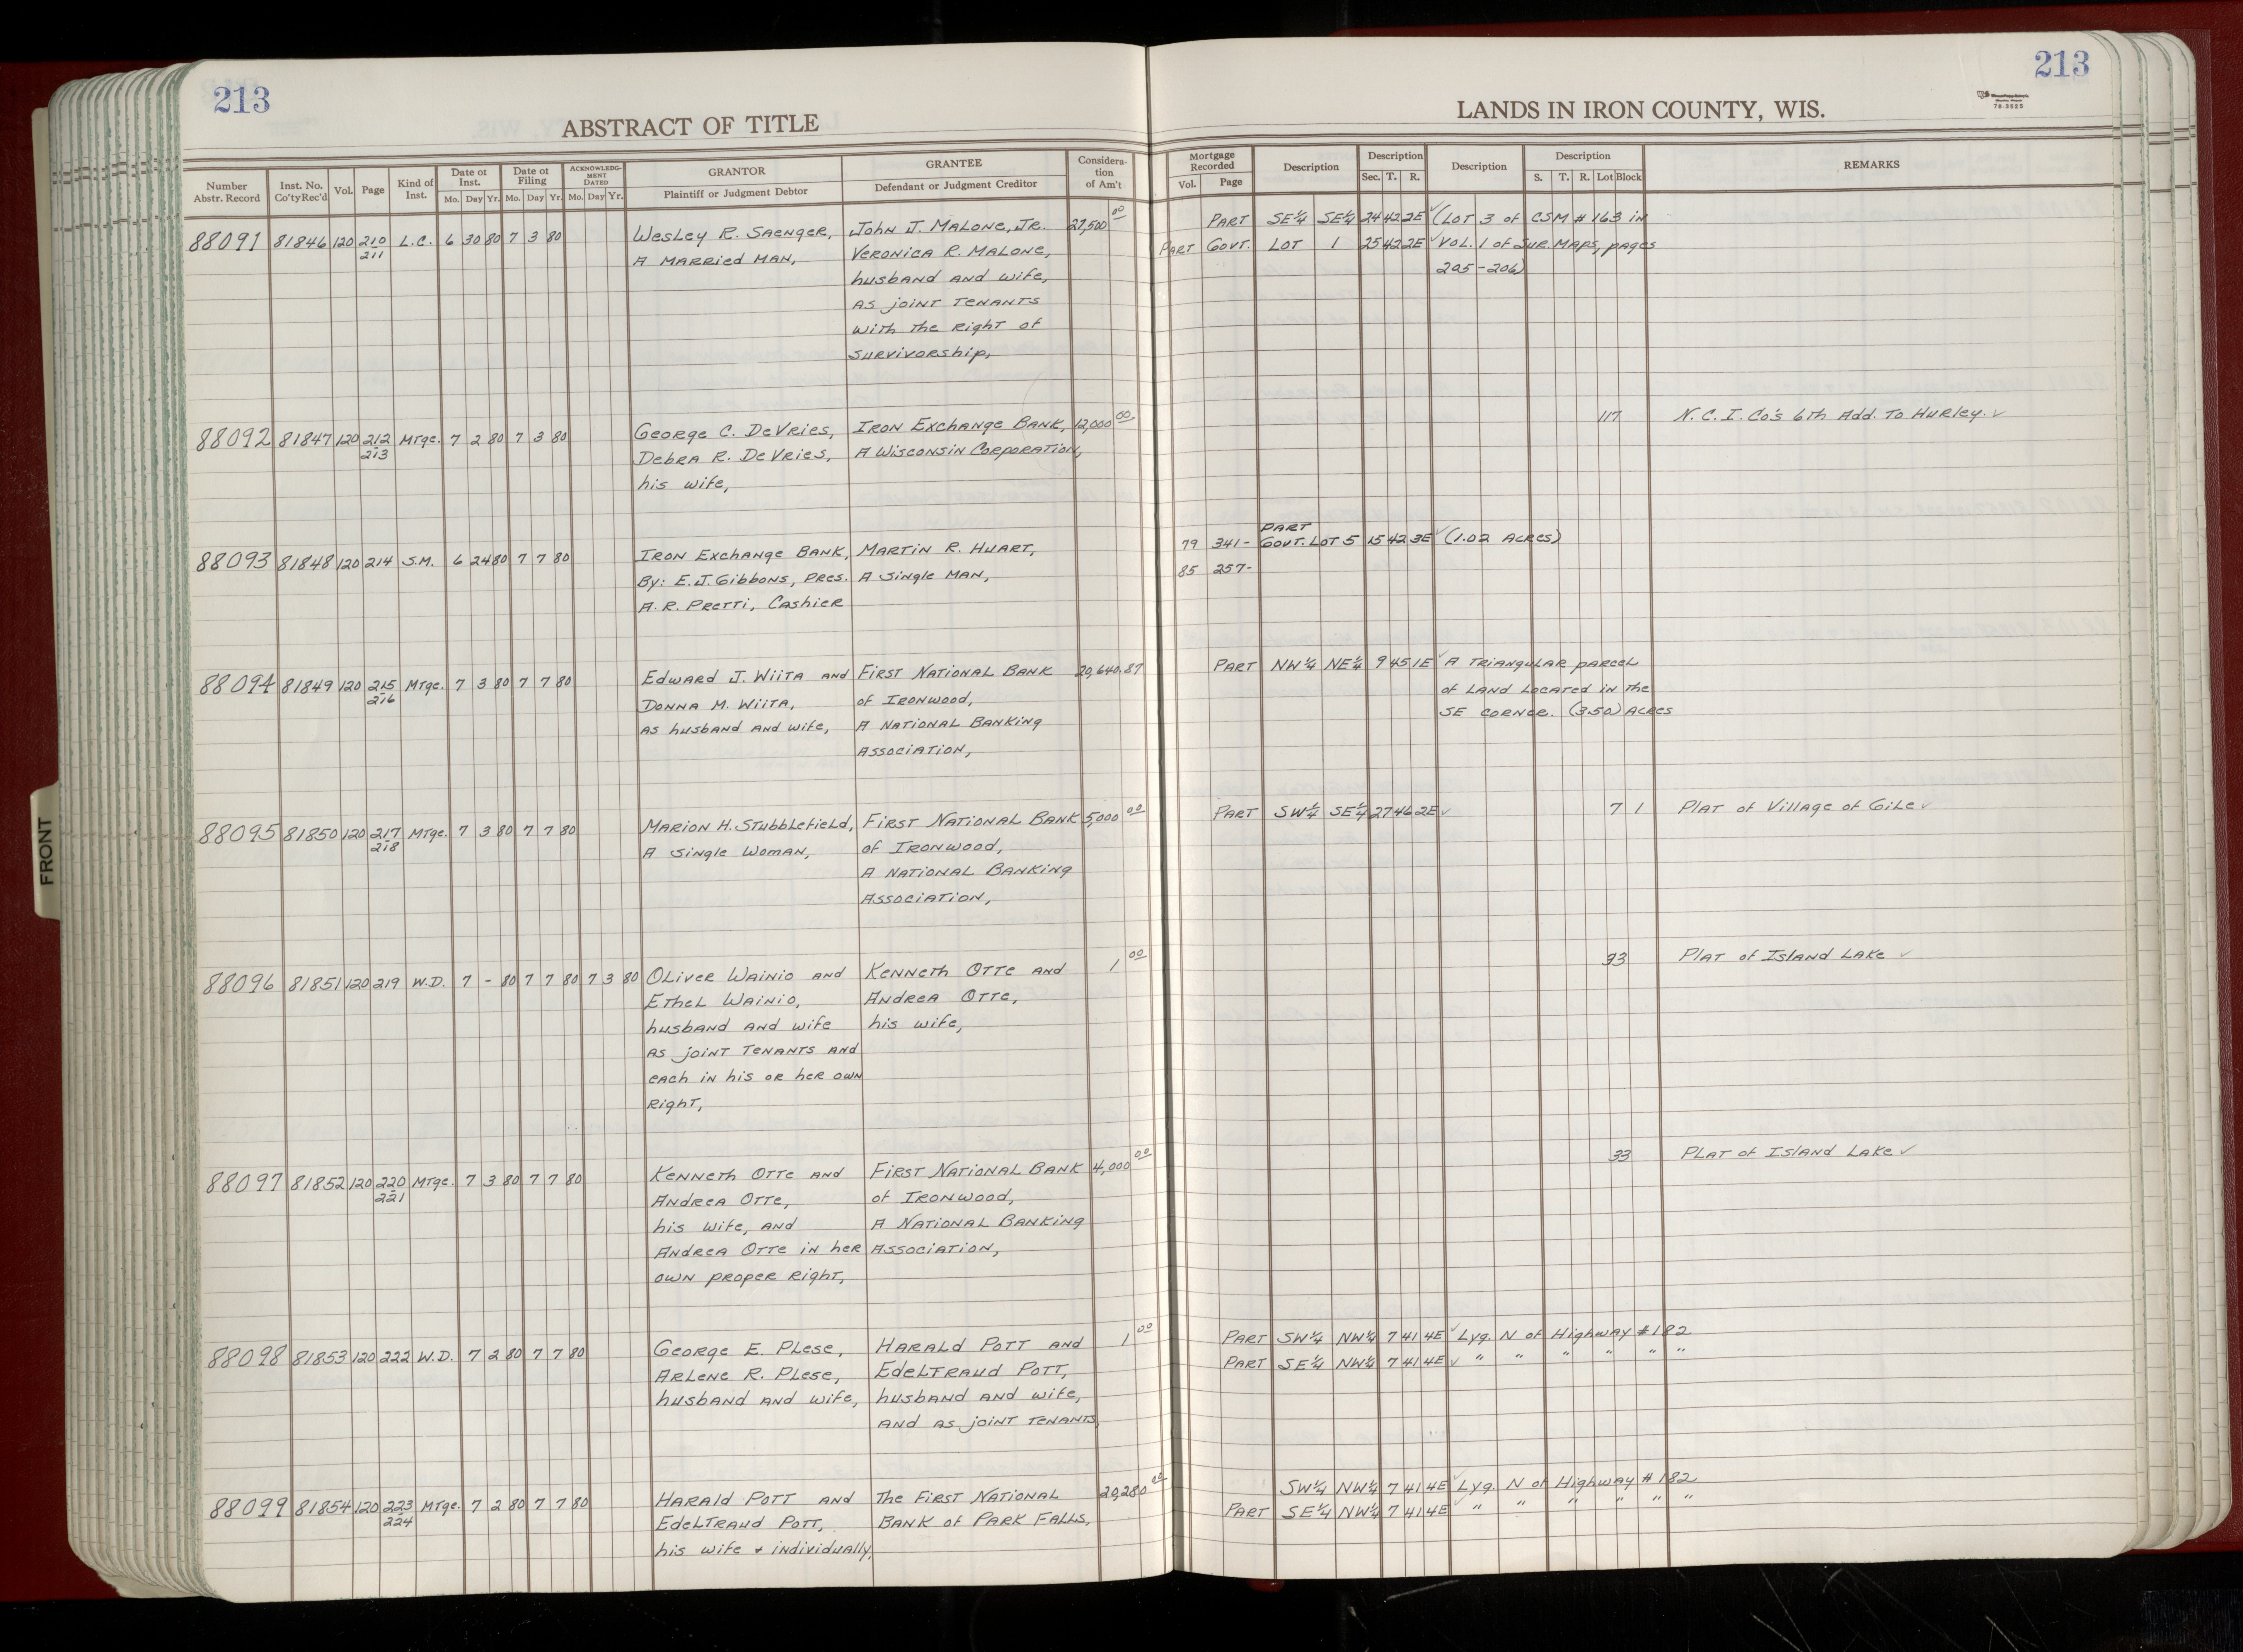 213
ABSTRACT OF TITLE
Number Abstr. Record | Inst. No. Co'ty Rec'd | Vol. | Page | Kind of Inst. | Date of Inst. Mo. Day Yr. | Date of Filing Mo. Day Yr. | ACKNOWLEDG-MENT DATED Mo. Day Yr. | GRANTOR Plaintiff or Judgment Debtor | GRANTEE Defendant or Judgment Creditor | Considera-tion of Am't
88091 81846 120 210 211 L.C. 6 30 80 7 3 80 Wesley R. Saenger, John J. Malone, Jr. 27,500 00
A Married Man, Veronica R. Malone,
husband and wife,
as joint tenants
with the right of
survivorship,
88092 81847 120 212 213 Mtge. 7 2 80 7 3 80 George C. DeVries, Iron Exchange Bank, 12,000 00
Debra R. DeVries, A Wisconsin Corporation,
his wife,
88093 81848 120 214 S.M. 6 24 80 7 7 80 Iron Exchange Bank, Martin R. Huart,
By: E.J. Gibbons, Pres. A single man,
A.R. Pretti, Cashier
88094 81849 120 215 216 Mtge. 7 3 80 7 7 80 Edward J. Wiita and First National Bank 20,640.87
Donna M. Wiita, of Ironwood,
as husband and wife, A National Banking
Association,
88095 81850 120 217 218 Mtge. 7 3 80 7 7 80 Marion H. Stubblefield, First National Bank 5,000 00
A single woman, of Ironwood,
A National Banking
Association,
88096 81851 120 219 W.D. 7 - 80 7 7 80 7 3 80 Oliver Wainio and Kenneth Otte and 1 00
Ethel Wainio, Andrea Otte,
husband and wife his wife,
as joint tenants and
each in his or her own
right,
88097 81852 120 220 221 Mtge. 7 3 80 7 7 80 Kenneth Otte and First National Bank 4,000 00
Andrea Otte, of Ironwood,
his wife, and A National Banking
Andrea Otte in her Association,
own proper right,
88098 81853 120 222 W.D. 7 2 80 7 7 80 George E. Plese, Harald Pott and 1 00
Arlene R. Plese, Edeltraud Pott,
husband and wife, husband and wife,
and as joint tenants,
88099 81854 120 223 224 Mtge. 7 2 80 7 7 80 Harald Pott and The First National 20,280 00
Edeltraud Pott, Bank of Park Falls,
his wife + individually,
213
78-3525
LANDS IN IRON COUNTY, WIS.
Mortgage Recorded Vol. Page | Description | Description Sec. T. R. | Description | Description S. T. R. Lot Block | REMARKS
Part SE¼ SE¼ 24 42 2E ✓ (Lot 3 of CSM #163 in
Part Govt. Lot 1 25 42 2E ✓ Vol. 1 of Sur. Maps, pages
205-206)
117 N.C.I. Co's 6th Add. to Hurley. ✓
Part
79 341- Govt. Lot 5 15 42 3E ✓ (1.02 Acres)
85 257-
Part NW¼ NE¼ 9 45 1E ✓ A triangular parcel
of land located in the
SE corner. (3.50) Acres
Part SW¼ SE¼ 27 46 2E ✓ 7 1 Plat of Village of Gile ✓
33 Plat of Island Lake ✓
33 Plat of Island Lake ✓
Part SW¼ NW¼ 7 41 4E ✓ Lyg. N of Highway #182
Part SE¼ NW¼ 7 41 4E ✓ " " " " " "
SW¼ NW¼ 7 41 4E ✓ Lyg. N of Highway #182
Part SE¼ NW¼ 7 41 4E ✓ " " " " " "
FRONT